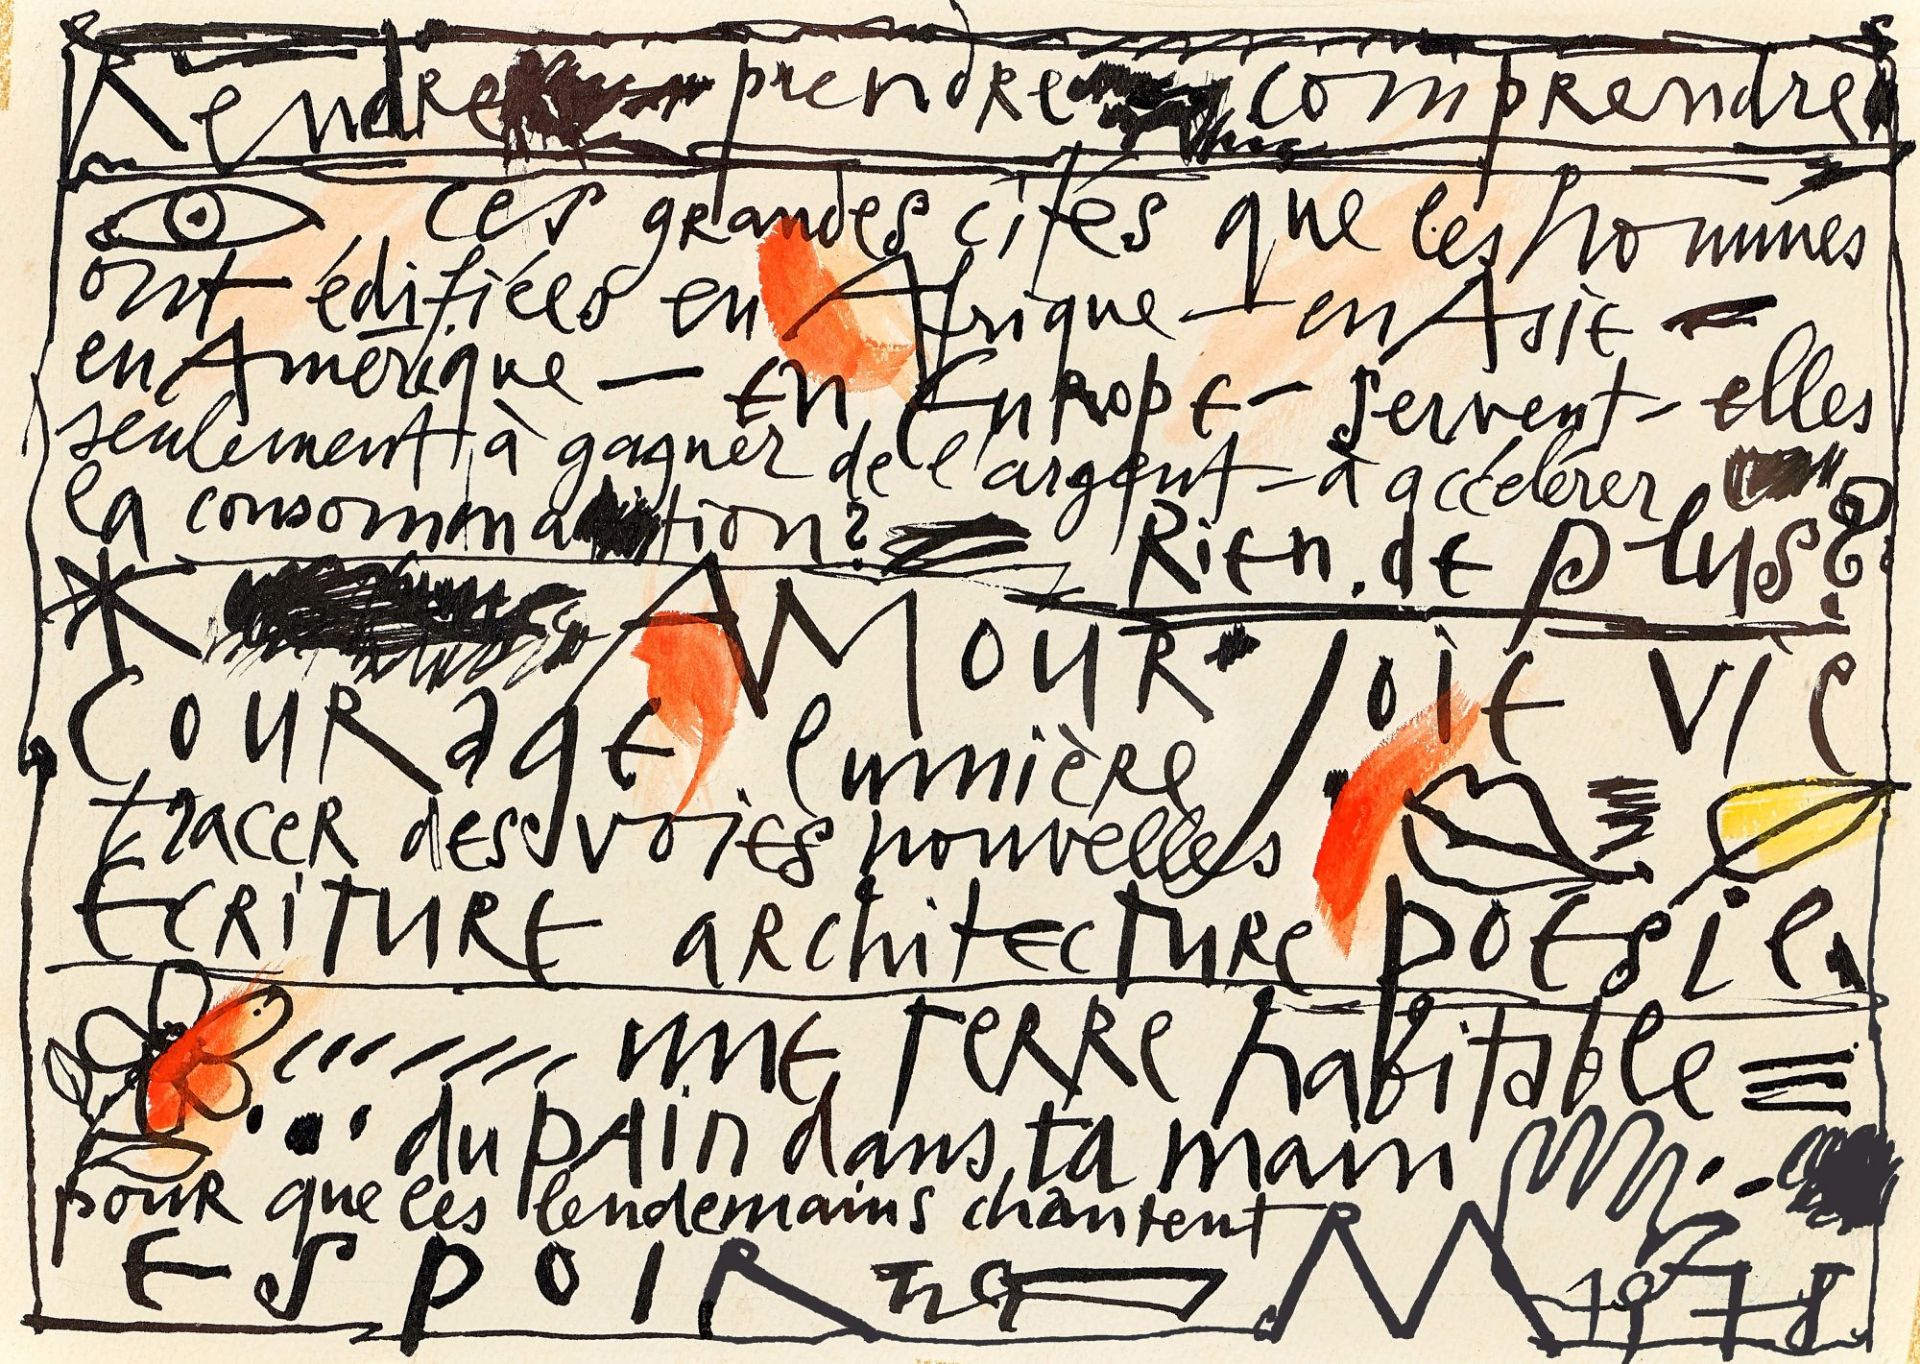 Rendre prendre comprendre
ces grandes cités que les hommes
ont édifiées en Afrique — en Asie —
en Amérique — en Europe — servent-elles
seulement à gagner de l'argent - à accélérer
la consommation ?
Rien de plus ?
AMOUR Joie Vie
Courage lumière
tracer des voies nouvelles
Ecriture architecture poésie
une Terre habitable
du pain dans ta main
pour que les lendemains chantent
ESPOIR
1978